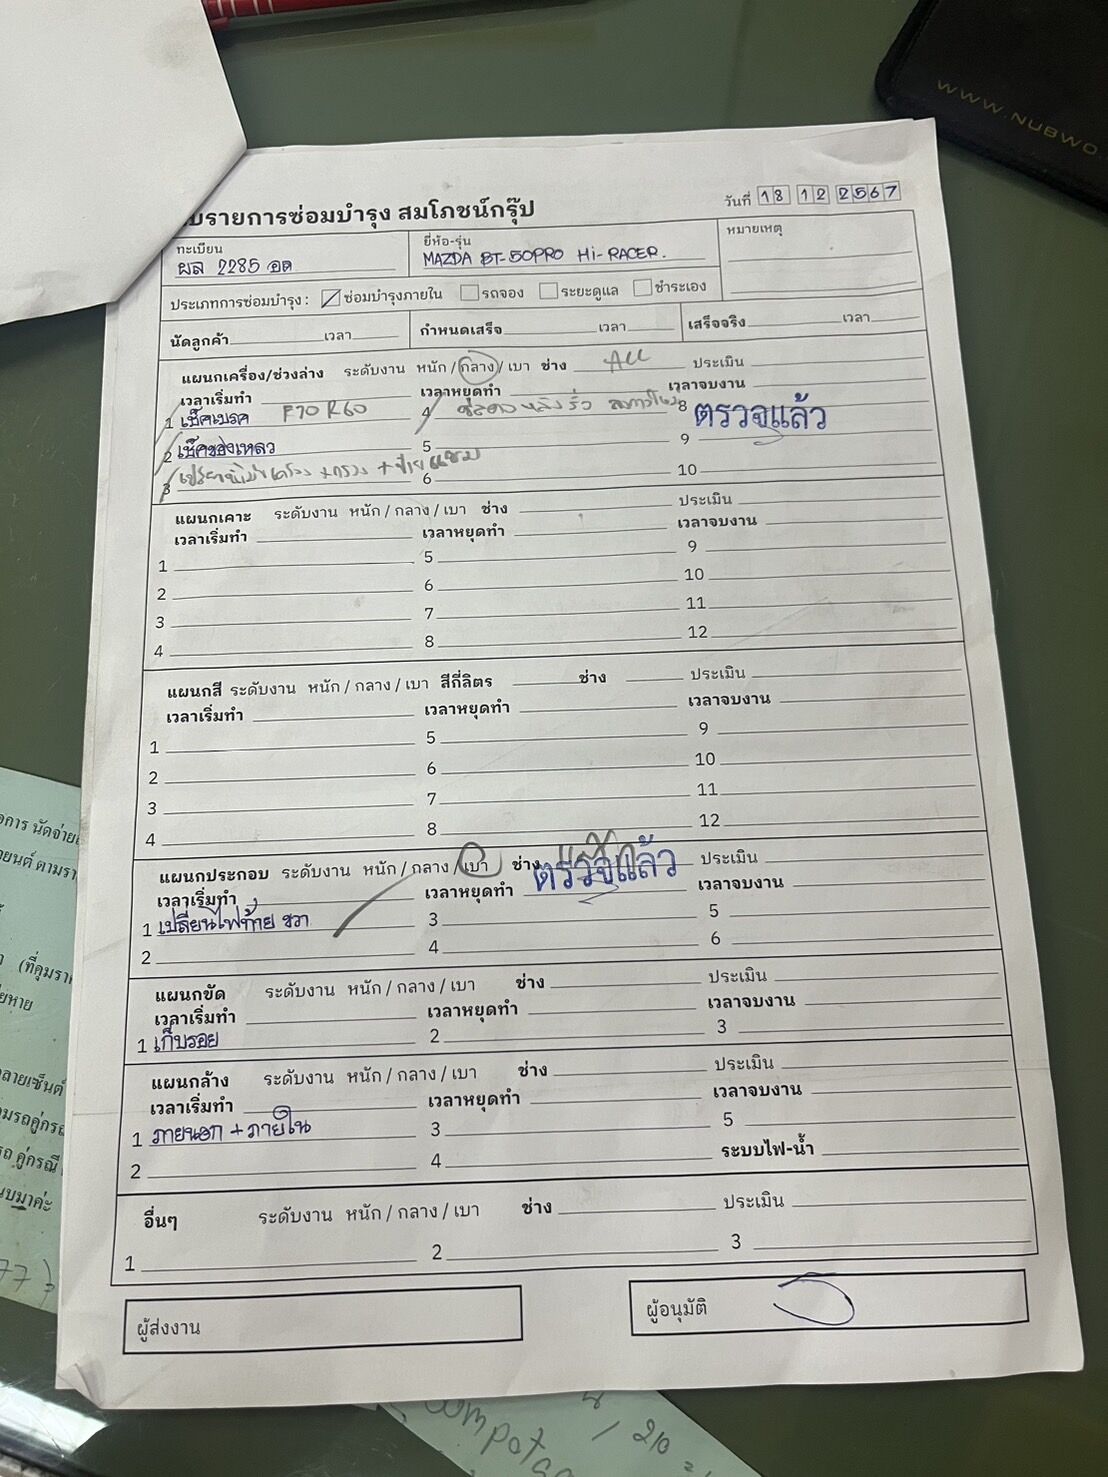 WWW.NUBWO.
บรายการซ่อมบำรุง สมโภชน์กรุ๊ป
วันที่ 18 12 2567
ทะเบียน
ผล 2285 อด
ยี่ห้อ-รุ่น
MAZDA BT-50PRO Hi-RACER.
หมายเหตุ
ประเภทการซ่อมบำรุง : ซ่อมบำรุงภายใน รถจอง ระยะดูแล ชำระเอง
นัดลูกค้า เวลา กำหนดเสร็จ เวลา เสร็จจริง เวลา
แผนกเครื่อง/ช่วงล่าง ระดับงาน หนัก / กลาง / เบา ช่าง ALL ประเมิน
เวลาเริ่มทำ เวลาหยุดทำ เวลาจบงาน
1 เช็คเบรค F70 R60 4 8 ตรวจแล้ว
2 เช็คของเหลว 5 9
3 6 10
แผนกเคาะ ระดับงาน หนัก / กลาง / เบา ช่าง ประเมิน
เวลาเริ่มทำ เวลาหยุดทำ เวลาจบงาน
1 5 9
2 6 10
3 7 11
4 8 12
แผนกสี ระดับงาน หนัก / กลาง / เบา สีกี่ลิตร ช่าง ประเมิน
เวลาเริ่มทำ เวลาหยุดทำ เวลาจบงาน
1 5 9
2 6 10
3 7 11
4 8 12
แผนกประกอบ ระดับงาน หนัก / กลาง / เบา ช่าง ตรวจแล้ว ประเมิน
เวลาเริ่มทำ เวลาหยุดทำ เวลาจบงาน
1 เปลี่ยนไฟท้าย ขวา 3 5
2 4 6
แผนกขัด ระดับงาน หนัก / กลาง / เบา ช่าง ประเมิน
เวลาเริ่มทำ เวลาหยุดทำ เวลาจบงาน
1 เก็บรอย 2 3
แผนกล้าง ระดับงาน หนัก / กลาง / เบา ช่าง ประเมิน
เวลาเริ่มทำ เวลาหยุดทำ เวลาจบงาน
1 ภายนอก + ภายใน 3 5
2 4 ระบบไฟ-น้ำ
อื่นๆ ระดับงาน หนัก / กลาง / เบา ช่าง ประเมิน
1 2 3
ผู้ส่งงาน
ผู้อนุมัติ